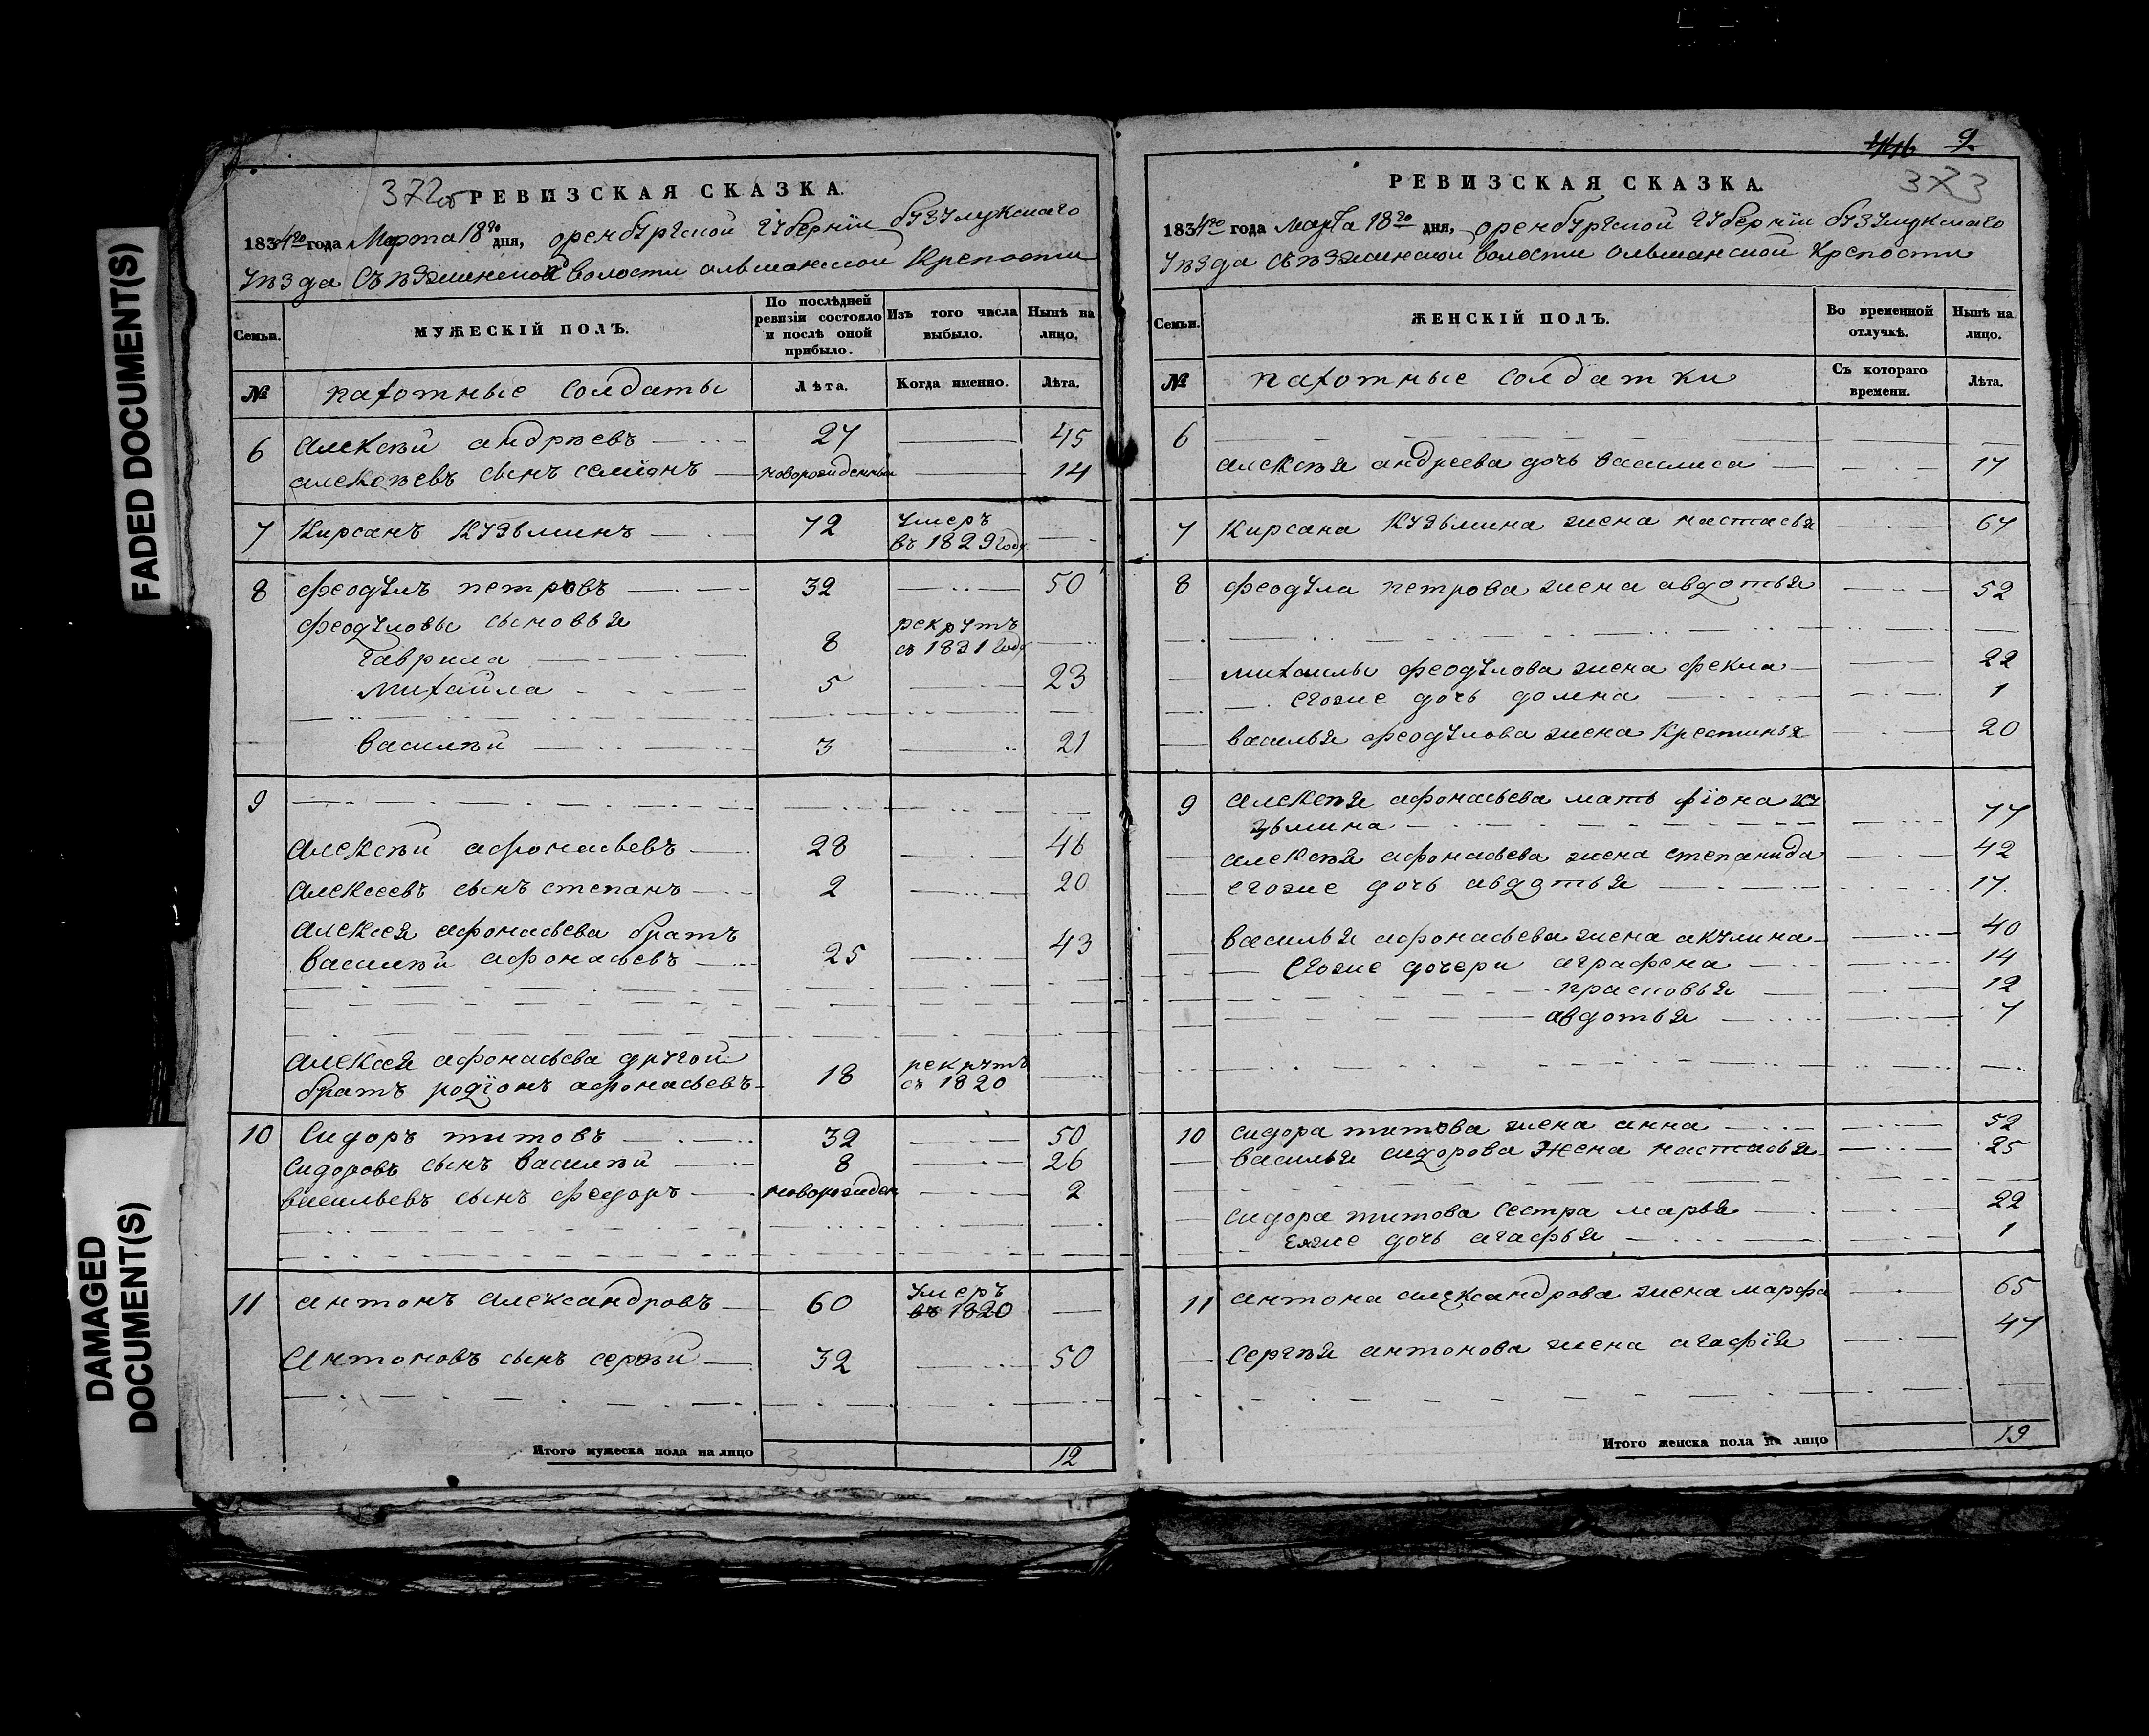 FADED DOCUMENT(S)
DAMAGED
DOCUMENT(S)
372об
РЕВИЗСКАЯ СКАЗКА.
1834го года Марта 18го дня, оренбургской губернїи бузулукскаго
уѣзда Съѣзжинской волости ольшанской крепости
Семьи.
МУЖЕСКІЙ ПОЛЪ.
По послѣдней ревизіи состояло и послѣ оной прибыло.
Изъ того числа выбыло.
Нынѣ на лицо.
№
пахотные солдаты
Лѣта.
Когда именно.
Лѣта.
6 алексѣй андрѣевъ 27 45
алексѣевъ сынъ семїонъ новорожденный 14
7 Кирсанъ Кузьминъ 72 умеръ въ 1829 году
8 феодулъ петровъ 32 50
феодуловы сыновья
гаврила 8 рекрутъ съ 1831 году
михайла 5 23
василѣй 3 21
9
алексѣй афонасьевъ 28 46
алексеевъ сынъ степанъ 2 20
алексея афонасьева братъ
василѣй афонасьевъ 25 43
алексея афонасьева другой
братъ родїонъ афонасьевъ 18 рекрутъ съ 1820
10 Сидоръ титовъ 32 50
сидоровъ сынъ василѣй 8 26
васильевъ сынъ федоръ новорожден 2
11 антонъ александровъ 60 умеръ въ 1820
антоновъ сынъ сергѣй 32 50
Итого мужеска пола на лицо 12
9.
373
РЕВИЗСКАЯ СКАЗКА.
1834го года марта 18го дня, оренбургской губернїи бузулукскаго
уѣзда съѣзжинской волости ольшанской крепости
Семьи.
ЖЕНСКІЙ ПОЛЪ.
Во временной отлучкѣ.
Нынѣ на лицо.
№
пахотные солдатки
Съ котораго времени.
Лѣта.
6
алексѣя андреева дочь василиса 17
7 Кирсана Кузьмина жена настасья 67
8 феодула петрова жена авдотья 52
михаилы феодулова жена фекла 22
егоже дочь домна 1
василья феодулова жена крестинья 20
9 алексѣя афонасьева мать фїона ку
зьмина 77
алексѣя афонасьева жена степанида 42
егоже дочь авдотья 17.
василья афонасьева жена акулина 40
егоже дочери аграфена 14
прасковья 12
авдотья 7
10 сидора титова жена анна 52
василья сидорова жена настасья 25
сидора титова сестра марья 22
еяже дочь агафья 1
11 антона александрова жена марфа 65
сергѣя антонова жена агафїя 47
Итого женска пола на лицо 19